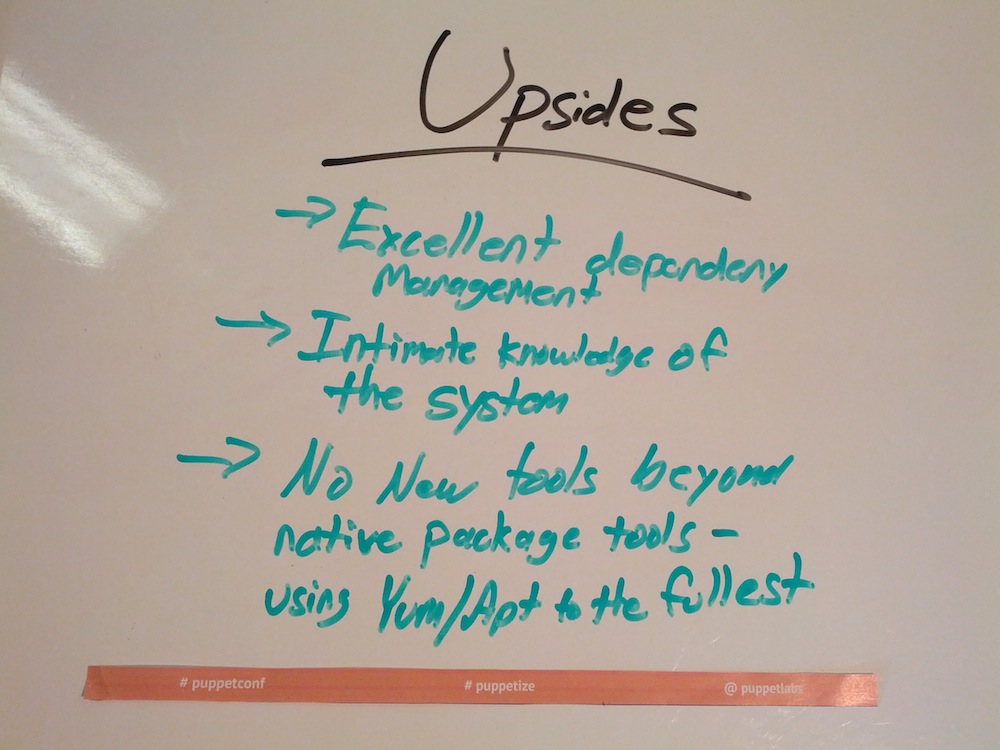 Upsides
→ Excellent dependeny
Management
→ Intimate knowledge of
the system
→ No New tools beyond
native package tools –
using Yum/Apt to the fullest
# puppetconf # puppetize @ puppetlabs